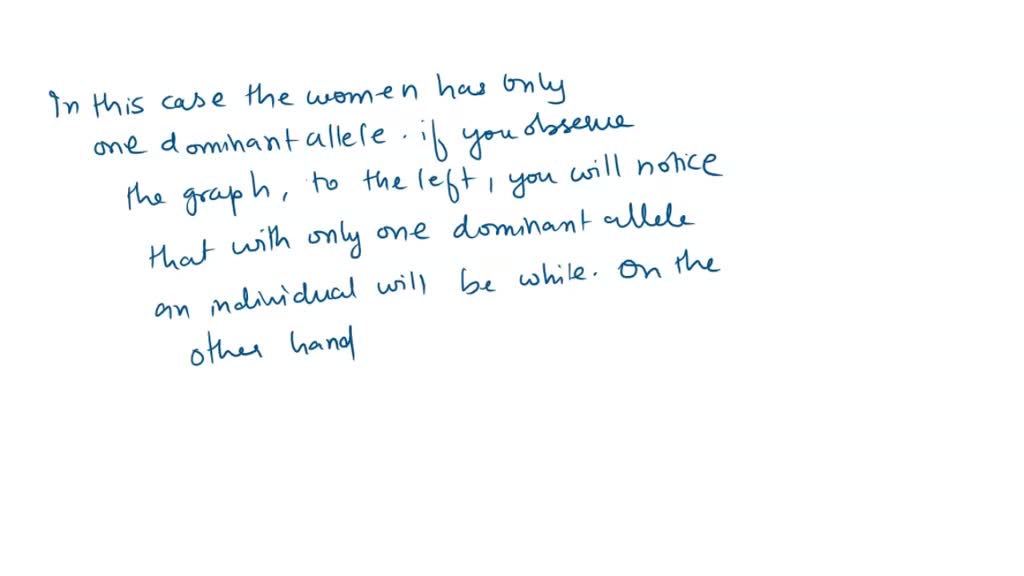 In this case the women has only
one dominant allele. if you observe
the graph, to the left, you will notice
that with only one dominant allele
an individual will be while. On the
other hand